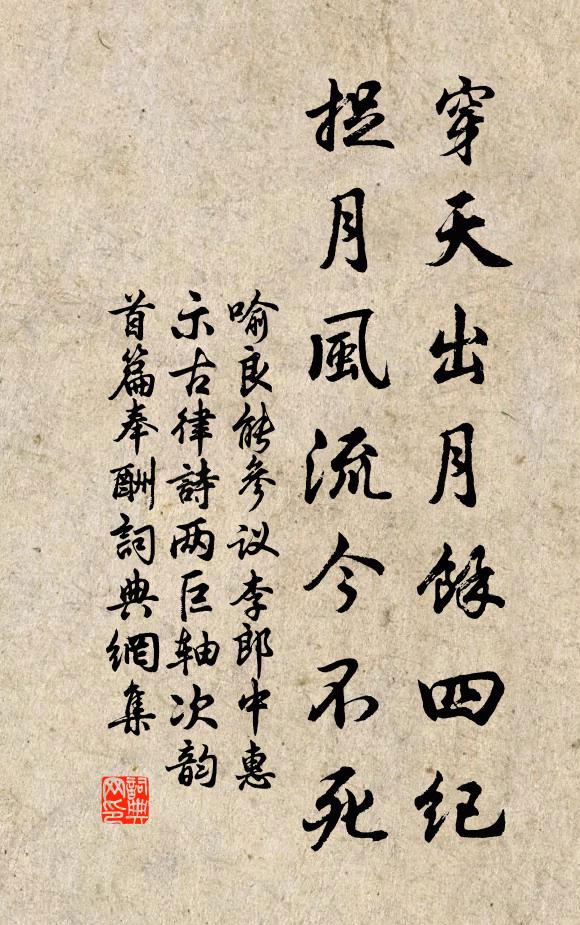 穿天出月餘四纪
捉月風流今不死
喻良能參议李郎中惠
示古律詩两巨轴次韵
首篇奉酬詞典網集
詞典网印